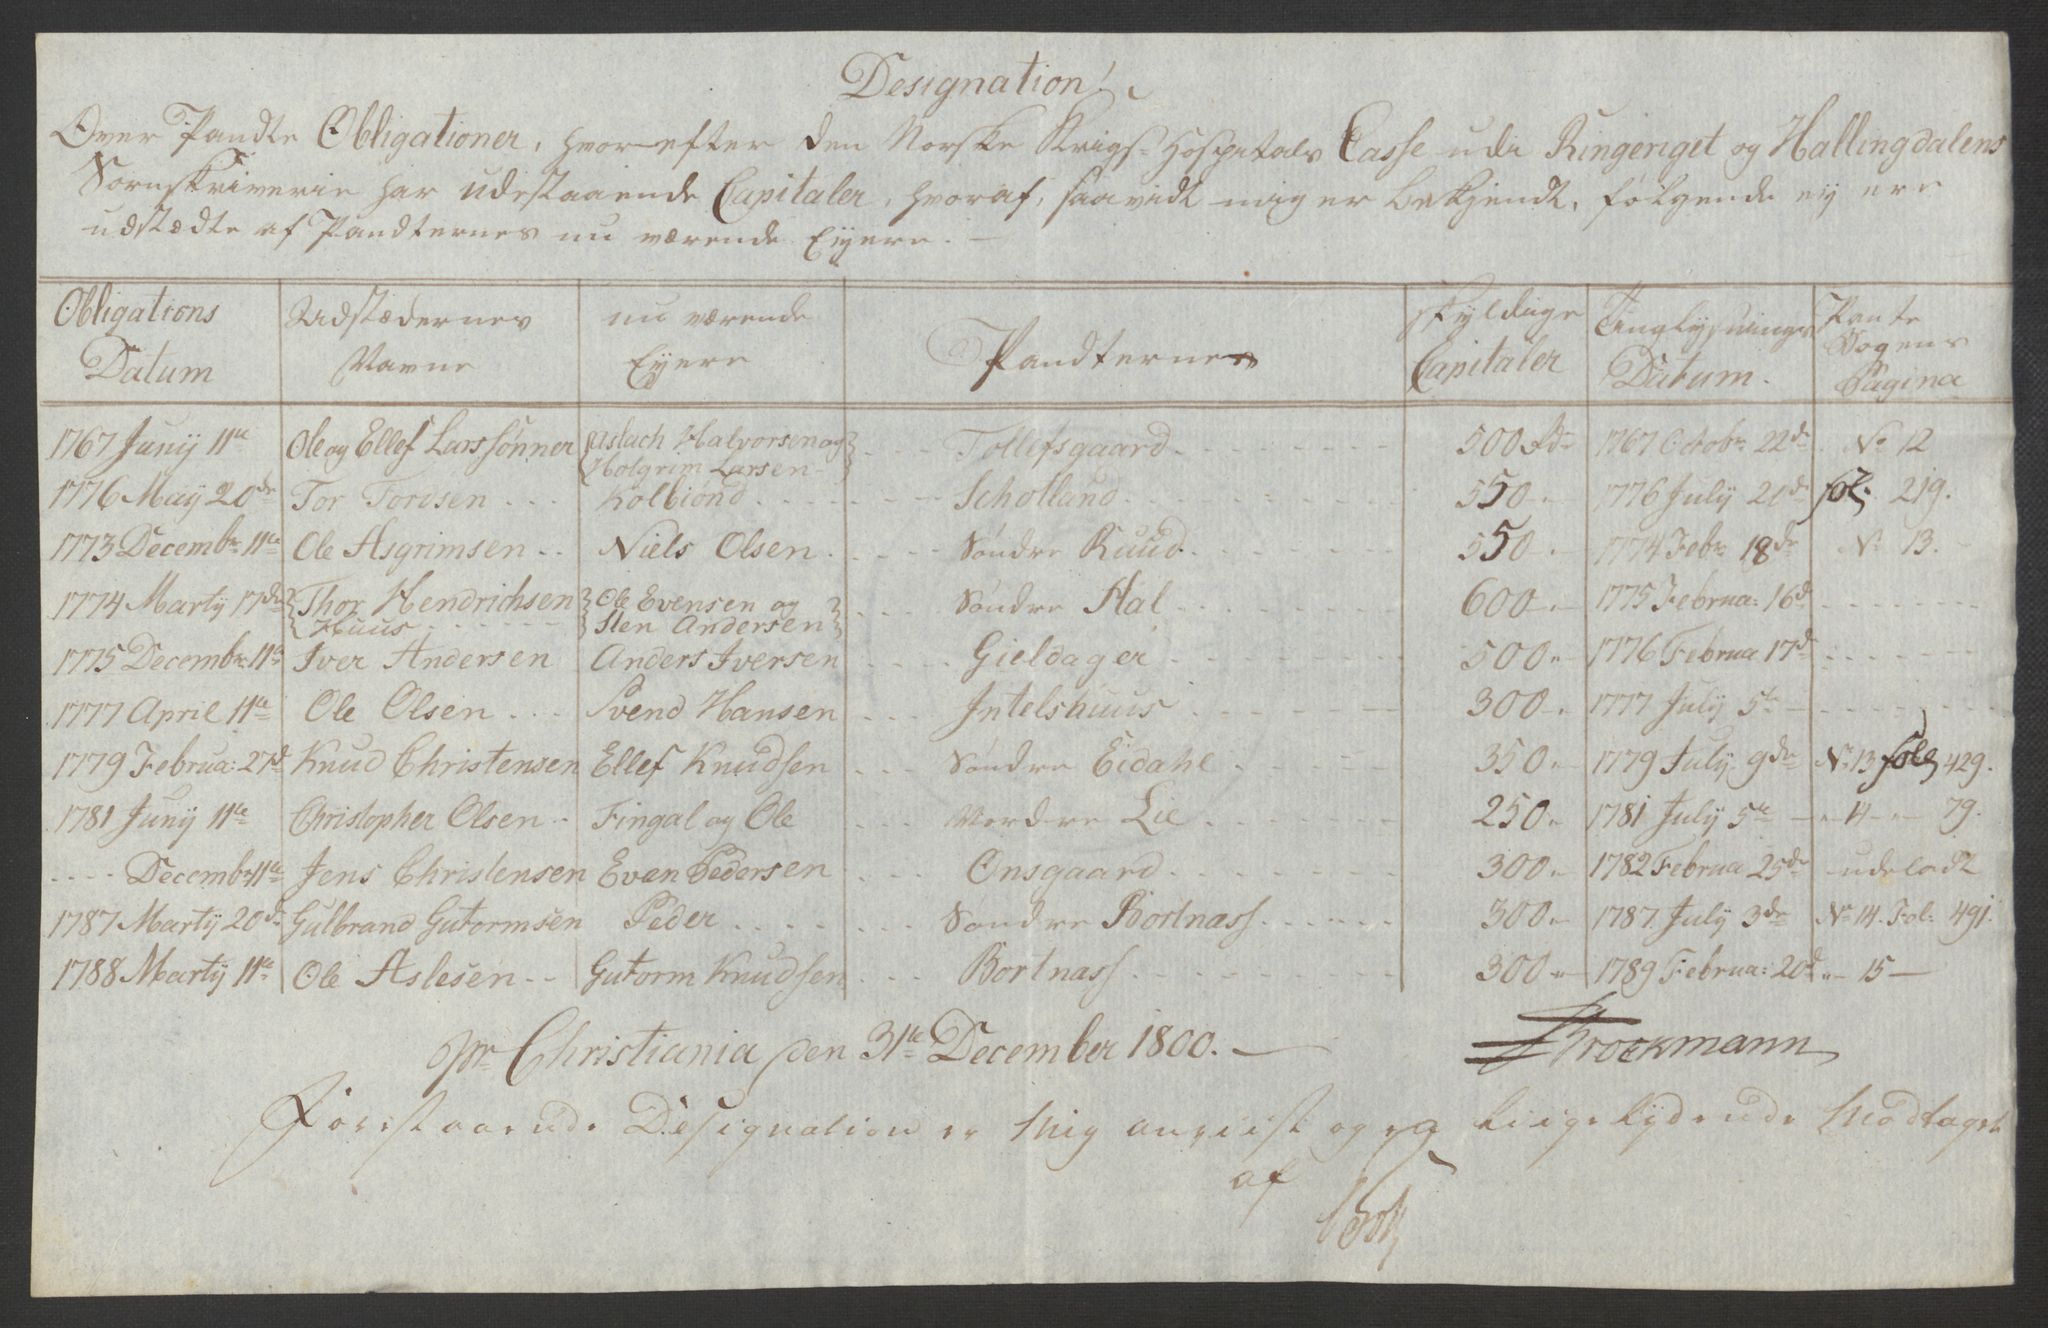 Designation
Over Pandte Obligationer, hvorefter den Norske Krigs-Hospitals Casse udi Ringeriget og Hallingdalens
Sorenskriverie har udestaaende Capitaler, hvoraf, saavidt mig er bekjendt, følgende ey ere
udstædte af Pandternes nu værende Eyere. —
Obligations Datum | Udstædernes Navne | nu værende Eyere | Pandternes | skyldige Capitaler | Tinglysnings Datum. | Pante Bogens Pagina
1767 Junij 11te | Ole og Ellef Lars sønner | Aslach Halvorsen og Holgrim Larsen | Tollefsgaard | 500 Rdr | 1767 Octobr: 22de | No 12
1776 Maij 20de | Tor Torisen | Kolbiønd | Scholland | 550 | 1776 July 20de | fol: 219.
1773 Decembr: 11te | Ole Asgrimsen | Niels Olsen | Søndre Ruud | 550 | 1774 Febr: 18de | No 13.
1774 Martij 17de | Thor Hendrichsen Huus | Ole Evensen og Sten Andersen | Søndre Hal | 600 | 1775 Februa: 16de
1775 Decembr: 11te | Iver Andersen | Anders Iversen | Gieldager | 500 | 1776 Februa 17de
1777 April 11te | Ole Olsen | Svend Hansen | Intelshuus | 300 | 1777 July 5te
1779 Februa: 27de | Knud Christensen | Ellef Knudsen | Søndre Eidahl | 350 | 1779 July 9de | No 13 fol 429.
1781 Junij 11te | Christopher Olsen | Fingal og Ole | Nordre Lie | 250 | 1781 July 5te | 14 — 79.
Decembr 11te | Jens Christensen | Even Pedersen | Onsgaard | 300 | 1782 Februa 25de | udeladt
1787 Martij 20de | Gulbrand Gutormsen | Peder | Søndre Bortnass | 300 | 1787 July 3de | No 14. Fol: 491.
1788 Martij 11te | Ole Aslesen | Gutorm Knudsen | Bortnass | 300 | 1789 Februa: 20de | 15 —
pr Christiania den 31te December 1800. —
Brockmann
Forestaaende Designation er mig anviist og eg liigelydende Modtaget
af